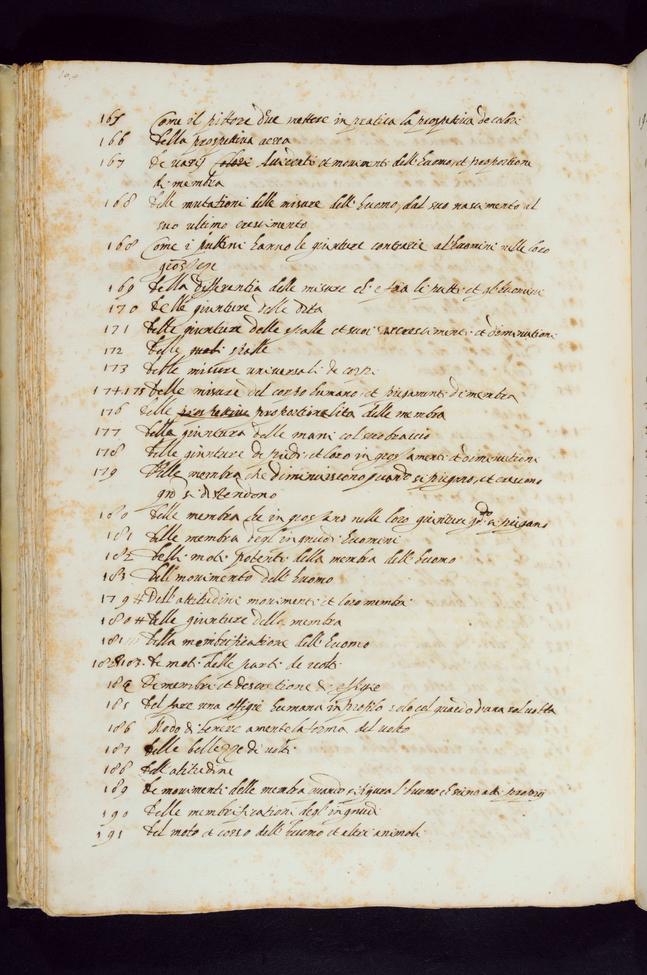 165 Come il pittore due mettere in pratica la prospettiua de colori
166 Della prospettiua aerea
167 De uarij accidenti et mouimenti dell'huomo, et proportione
di membra
168 Delle mutationi delle misure dell'huomo, dal suo nascimento al
suo ultimo crescimento
168 Come i puttini hanno le gionture contrarie al huomini nelle loro
grossezze
169 Della differentia delle misure ch'e fra li putti et gl'huomini
170 Delle gionture delle dita
171 Delle gionture delle spalle et suoi accrescimenti et diminutioni
172 Delle spalle
173 Delle misure uniuersali de corpi
174.175 Delle misure del corpo humano, et piegamenti di membra
176 Delle proportionalita delle membra
177 Della giuntura delle mani col suo braccio
178 Delle gionture di piedi, et loro ingrossamenti et diminutioni
179 Delle membra che diminuiscono quando si piegono, et crescono
qn̄o si distendono
180 Delle membra che ingrossano nelle loro gionture qn̄do si piegano
181 Delle membra degl'ingnudi huomini
182 Delli moti potenti della membra dell'huomo
183 Dell'mouimento dell'huomo
179 # Dell'attitudini mouimenti et loro membri
180 # Delle gionture delle membra
181 Della membrificatione dell'huomo
182 De moti delle parti de uolti
De membri et descrettione di effigie
185 Del fare una effigie humana in profilo solo col guardo d'una sol uolta
186 Modo di tenere a mente la forma del uolto
187 Delle bellezze di uolti
188 Dell'atitudine
189 De mouimenti delle membra quando si figura l'huomo che sieno atti proprij
190 Delle membrificationi degl'ingnudi
191 Del moto et corso dell'huomo et altri animali